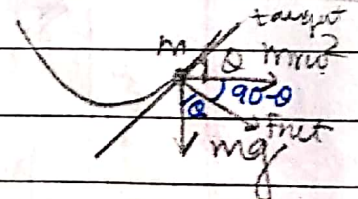 tangent
M θ mrω²
90-θ
θ
Fnet
mg